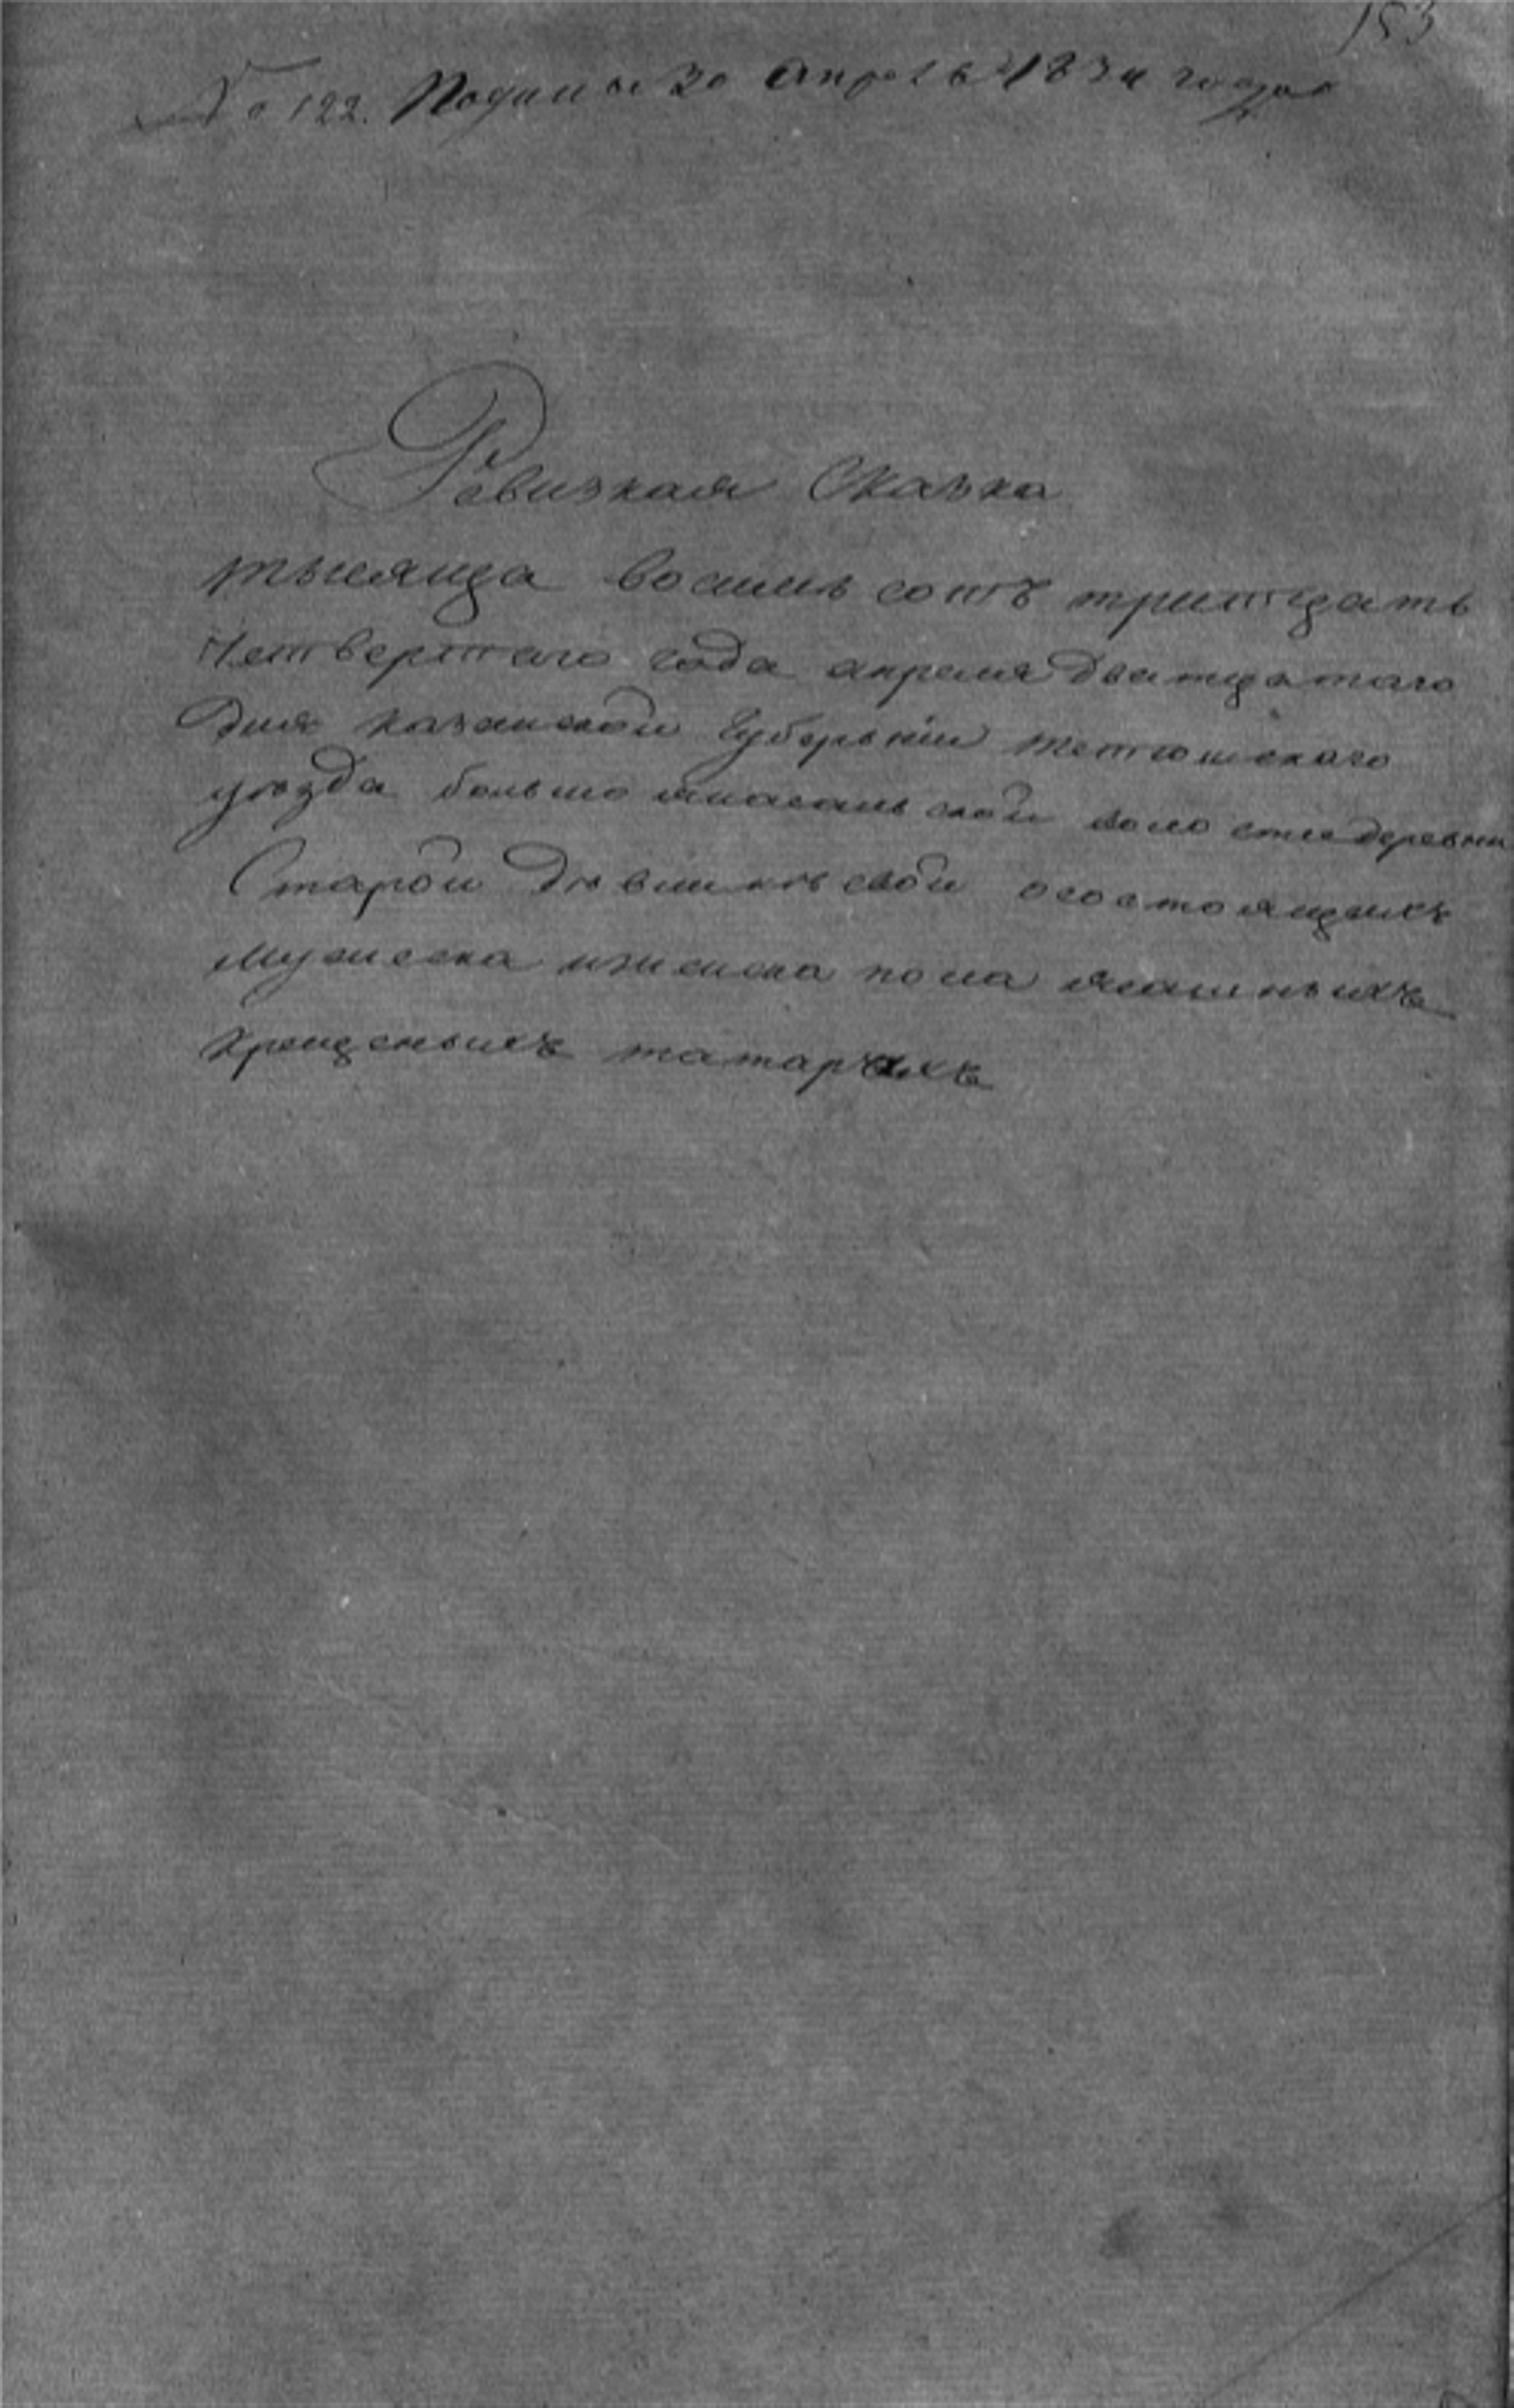 153
№ 122. Подана 30 Апреля 1834 года
Ревизкая Сказка
тысяща восимь сотъ тритцать
Четвертаго года апреля дватцатаго
дня казанской Губерьнии тетюшскаго
уезда больше волости деревни
Старой осостоящихъ
мужеска иженска пола ясашныхъ
крещеныхъ татарахъ